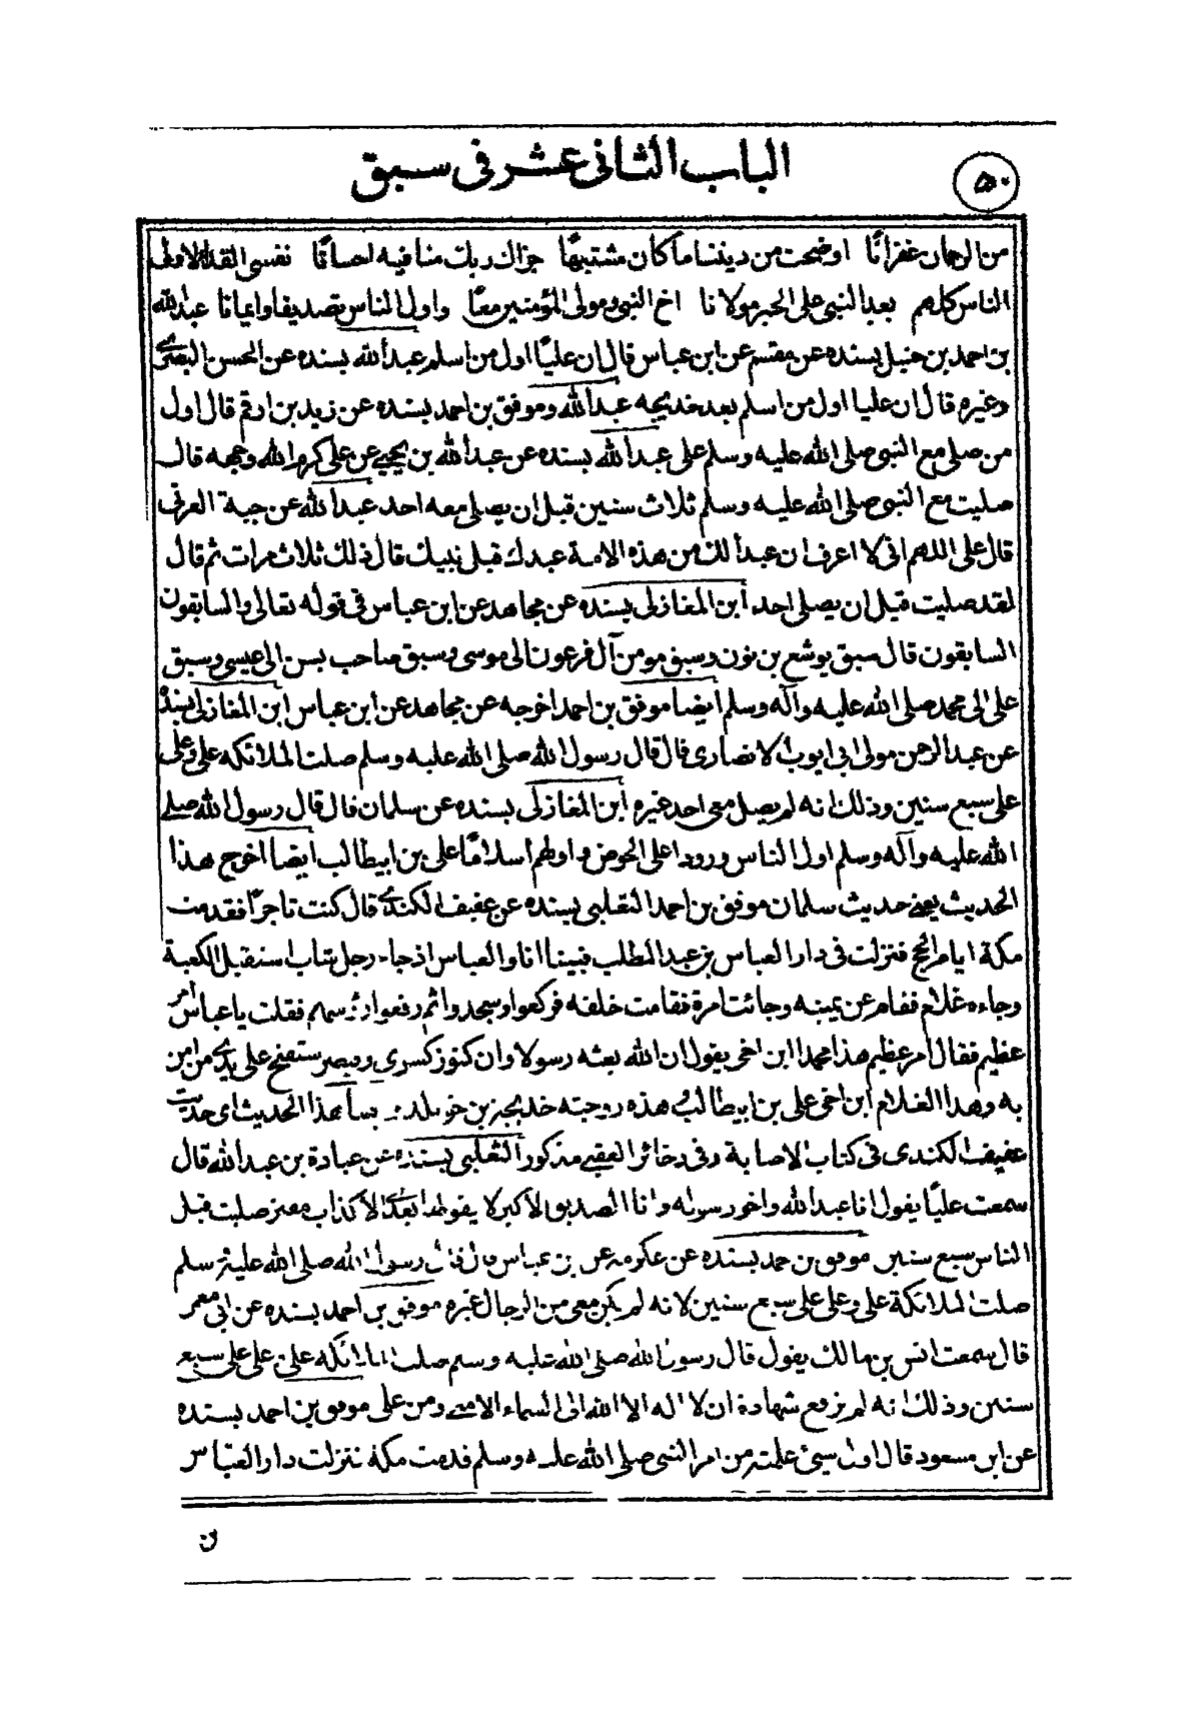 ٥٠
الباب الثانى عشر فى سبق
من الرحمان غفرانًا اوضحت من ديننا ما كان مشتبهًا جزاك ربك منا فيه احسانًا نفسى الفداء لاولى
الناس كلهم بعد النبى على الحبر مولانا اخ النبى ومولى المؤمنين معًا واول الناس تصديقا وايمانا عبد الله
بن احمد بن حنبل بسنده عن مقسم عن ابن عباس قال ان عليًا اول من اسلم عبد الله بسنده عن الحسن البصرى
وغيره قال ان عليا اول من اسلم بعد خديجه عبد الله وموفق بن احمد بسنده عن زيد بن ارقم قال اول
من صلى مع النبى صلى الله عليه وسلم على عبد الله بسنده عن عبد الله بن يحيى عن على كرم الله وجهه قال
صليت مع النبى صلى الله عليه وسلم ثلاث سنين قبل ان يصلى معه احد عبد الله عن حبة العرنى
قال على اللهم انى لا اعرف ان عبدا لك من هذه الامة عبدك قبل نبيك قال ذلك ثلاث مرات ثم قال
لقد صليت قبل ان يصلى احد ابن المغازلى بسنده عن مجاهد عن ابن عباس فى قوله تعالى والسابقون
السابقون قال سبق يوشع بن نون وسبق مومن آل فرعون الى موسى وسبق صاحب يسن الى عيسى وسبق
على الى محمد صلى الله عليه وآله وسلم ايضا موفق بن احمد اخرجه عن مجاهد عن ابن عباس ابن المغازلى بسنده
عن عبد الرحمن مولى ابى ايوب الانصارى قال قال رسول الله صلى الله عليه وسلم صلت الملائكه على وعلى
على سبع سنين وذلك انه لم يصل معى احد غيره ابن المغازلى بسنده عن سلمان قال قال رسول الله صلى
الله عليه وآله وسلم اول الناس ورودا على الحوض واولهم اسلامًا على بن ابيطالب ايضا اخرج هذا
الحديث يعنى حديث سلمان موفق بن احمد الثعلبى بسنده عن عفيف الكندى قال كنت تاجرًا فقدمت
مكة ايام الحج فنزلت فى دار العباس بن عبد المطلب فبينا انا والعباس اذ جاء رجل شاب استقبل الكعبة
وجاءه غلام فقام عن يمينه وجائت امرة فقامت خلفه فركعوا وسجدوا ثم رفعوا رؤسهم فقلت يا عباس أمر
عظيم فقال امر عظيم هذا محمد ابن اخى يقول ان الله بعثه رسولا وان كنوز كسرى وقيصر ستفتح على يدى من امن
به وهذا الغلام ابن اخى على بن ابيطالب هذه زوجته خديجة بنت خويلد هذا الحديث اى حديث
عفيف الكندى فى كتاب الاصابة وفى ذخائر العقبى مذكور الثعلبى بسنده عن عبادة بن عبد الله قال
سمعت عليًا يقول انا عبد الله واخو رسوله وانا الصديق الاكبر لا يقولها بعدى الا كذاب مفتر صليت قبل
الناس سبع سنين موفق بن احمد بسنده عن عكرمه عن بن عباس قال قال رسول الله صلى الله عليه وسلم
صلت الملائكة على وعلى على سبع سنين لانه لم يكن معى من الرجال غيره موفق بن احمد بسنده عن ابى معمر
قال سمعت انس بن مالك يقول قال رسول الله صلى الله عليه وسلم صلت الملائكه على على على سبع
سنين وذلك انه لم يرفع شهادة ان لا اله الا الله الى السماء الا منى ومن على موفق بن احمد بسنده
عن ابن مسعود قال اول شيئ علمته من امر النبى صلى الله عليه وسلم قدمت مكة فنزلت دار العباس